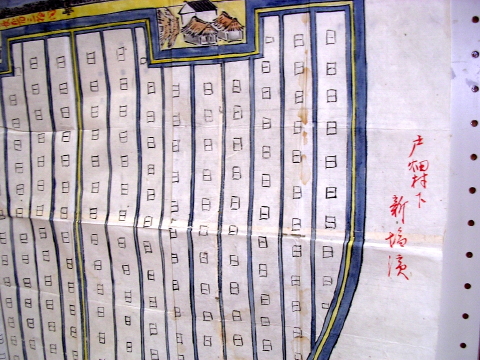 戸畑村下
新塩濱